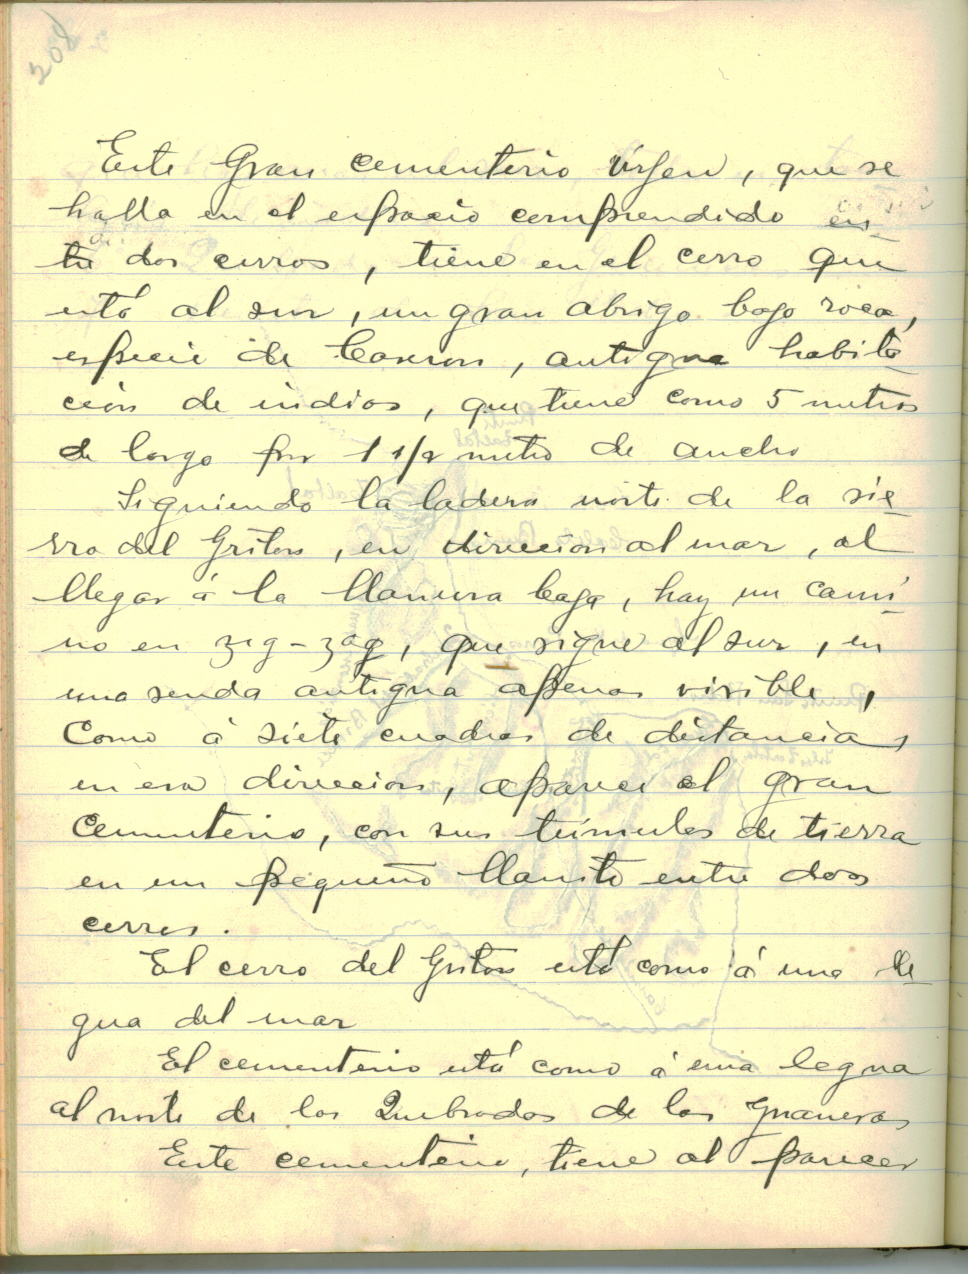 208
Este Gran cementerio vírgen, que se
halla en el espacio comprendido en-
tre dos cerros, tiene en el cerro que
está al sur, un gran abrigo bajo roca,
especie de Caseron, antigua habita-
ción de indios, que tiene como 5 metros
de largo por 1 1/2 metro de ancho
Siguiendo la ladera norte de la sie-
rra del Griton, en direccion al mar, al
llegar á la llanura baja, hay un cami-
no en zig-zag, que sigue al sur, en
una senda antigua apenas visible,
Como á siete cuadras de distancia,
en esa direccion, aparece el gran
Cementerio, con sus túmulos de tierra
en un pequeño llanito entre dos
cerros.
El cerro del Griton está como á una le-
gua del mar
El cementerio está como á una legua
al norte de las Quebradas de las Guaneras
Este cementerio, tiene al parecer